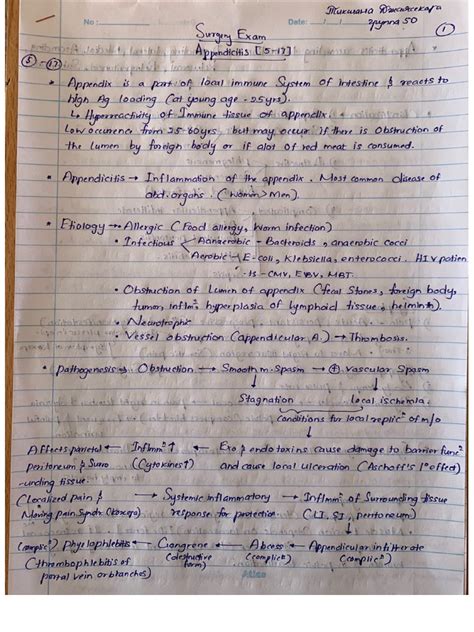 No: Date:
группа 50
①
Surgery Exam
Appendicitis [5-17]
⑤ ⑰
• Appendix is a part of local immune System of Intestine & reacts to
high Ag loading (at young age - 25yrs).
↳ Hyperreactivity of Immune tissue of appendix.
Low occurence from 25-60yrs, but may occur if there is Obstruction of
the lumen by foreign body or if alot of red meat is consumed.
• Appendicitis → Inflammation of the appendix. Most common disease of
abd. organs. (Women > Men).
• Etiology → Allergic (Food allergy, Warm infection)
• Infectious Aanaerobic - Bacteroids, anaerobic cocci
Aerobic - E-coli, Klebsiella, enterococci. HIV patien
-ts - CMV, EBV, MBT.
• Obstruction of Lumen of appendix (fecal Stones, foreign body,
tumor, inflmn hyperplasia of lymphoid tissue, helminth).
• Neurotrophic
• Vessel obstruction (appendicular A.) → Thrombosis.
• pathogenesis → Obstruction → Smooth m. Spasm → ⊕ Vascular Spasm
↓ ↓
Stagnation Local ischemia.
Conditions for local replicn of m/o
↓
Affects parietal ← Inflmmn ↑ ← Exo & endotoxins cause damage to barrier funcn
peritoneum & Surro (Cytokines↑) and cause local ulceration (Aschoff's 1° effect)
-unding tissue
(Localized pain & → Systemic inflammatory → Inflmmn of Surrounding tissue
Moving pain Syndr (Kocher) response for protection (LI, SI, peritoneum)
↓
(complicn) Phylophlebitis ← Gangrene ← Abcess ← Appendicular infilterate
(thrombophlebitis of (destructive form) (complicn) (complicn)
portal vein or branches)